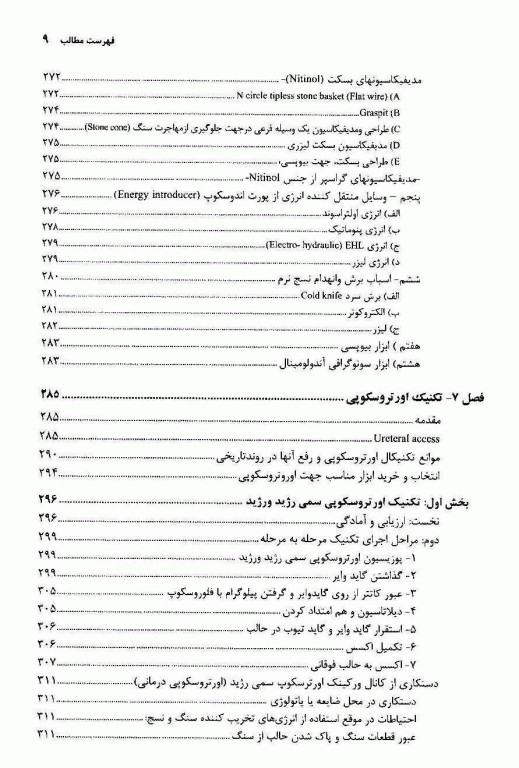 فهرست مطالب ۹
مدیفیکاسیونهای بسکت (Nitinol)- ۲۷۲
A) N circle tipless stone basket (Flat wire) ۲۷۲
B) Graspit ۲۷۴
C) طراحی ومدیفیکاسیون یک وسیله فرعی درجهت جلوگیری ازمهاجرت سنگ (Stone cone) ۲۷۴
D) مدیفیکاسیون بسکت لیزری ۲۷۵
E) طراحی بسکت، جهت بیوپسی، ۲۷۵
-مدیفیکاسیونهای گراسپر از جنس Nitinol- ۲۷۵
پنجم – وسایل منتقل کننده انرژی از پورت اندوسکوپ (Energy introducer) ۲۷۶
الف) انرژی اولتراسوند ۲۷۶
ب) انرژی پنوماتیک ۲۷۸
ج) انرژی EHL (Electro- hydraulic) ۲۷۹
د) انرژی لیزر ۲۷۹
ششم- اسباب برش وانهدام نسج نرم ۲۸۰
الف) برش سرد Cold knife ۲۸۱
ب) الکتروکوتر ۲۸۱
ج) لیزر ۲۸۲
هفتم ) ابزار بیوپسی ۲۸۳
هشتم) ابزار سونوگرافی آندولومینال ۲۸۳
فصل ۷- تکنیک اورتروسکوپی ۲۸۵
مقدمه ۲۸۵
Ureteral access ۲۸۵
موانع تکنیکال اورتروسکوپی و رفع آنها در روندتاریخی ۲۹۰
انتخاب و خرید ابزار مناسب جهت اورتروسکوپی ۲۹۴
بخش اول: تکنیک اورتروسکوپی سمی رژید ورژید ۲۹۶
نخست: ارزیابی و آمادگی ۲۹۶
دوم: مراحل اجرای تکنیک مرحله به مرحله ۲۹۹
۱- پوزیسیون اورتروسکوپی سمی رژید ورژید ۲۹۹
۲- گذاشتن گاید وایر ۲۹۹
۳- عبور کاتتر از روی گایدوایر و گرفتن پیلوگرام با فلوروسکوپ ۳۰۵
۴- دیلاتاسیون و هم امتداد کردن ۳۰۵
۵- استقرار گاید وایر و گاید تیوب در حالب ۳۰۶
۶- تکمیل اکسس ۳۰۶
۷- اکسس به حالب فوقانی ۳۰۷
دستکاری از کانال ورکینگ اورترسکوپ سمی رژید (اورتروسکوپی درمانی) ۳۱۱
دستکاری در محل ضایعه یا پاتولوژی ۳۱۱
احتیاطات در موقع استفاده از انرژی‌های تخریب کننده سنگ و نسج: ۳۱۱
عبور قطعات سنگ و پاک شدن حالب از سنگ ۳۱۱